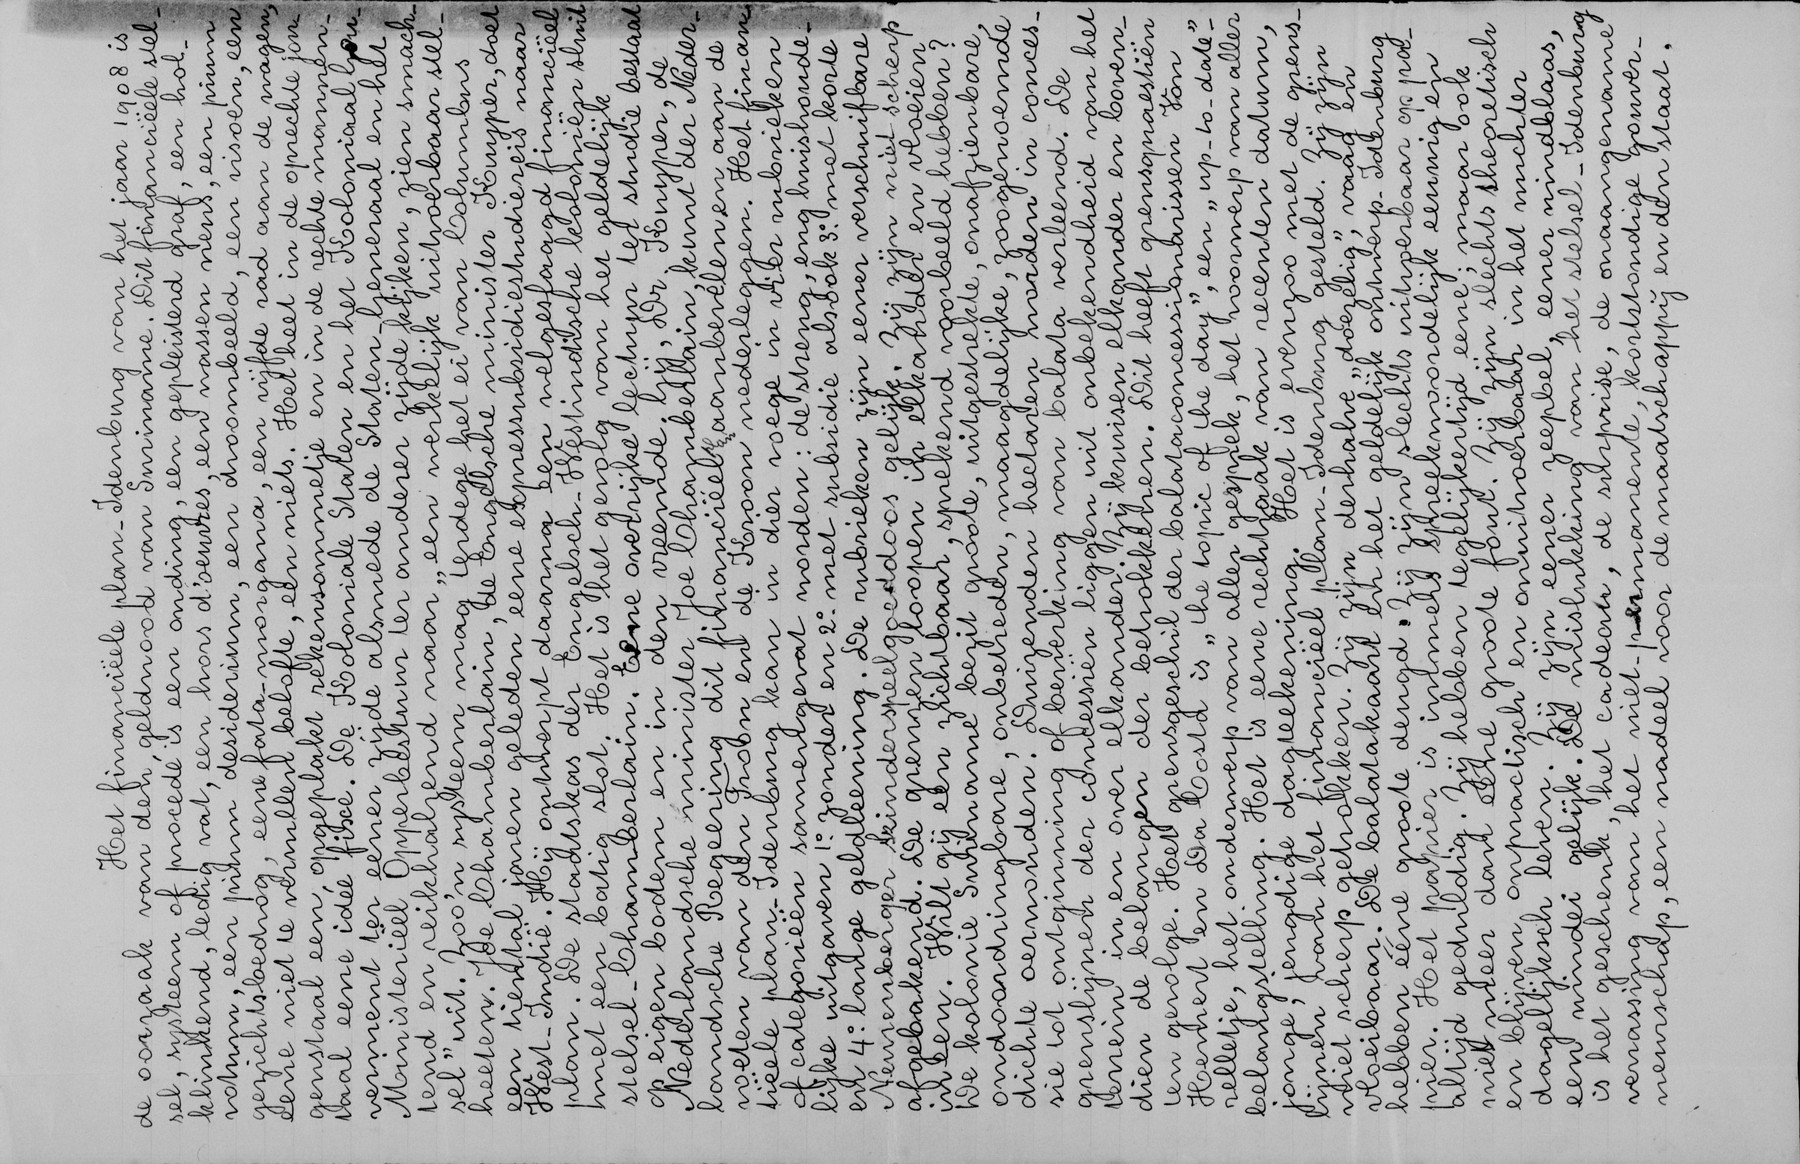 Het financiëele plan-Idenburg van het jaar 1908 is
de oorzaak van den geldnood van Suriname. Dit financiëele stel-
sel, systeem of procédé is een onding, een gepleisterd graf, een hol-
klinkend, ledig vat, een hors d'oeuvres, een wassen neus, een pium
votum, een pium desiderium, een droombeeld, een visoen, een
gezichtsbedrog, eene fata-morgana, een vijfde rad aan de wagen,
eene niet te vervullen belofte, een niets. Hoe heet in de oprechte jon-
genstaal een opgeplakt rekensommetje en in de rechte mannen-
taal eene idée fisce. De Koloniale Staten en het Koloniaal Gou-
vernement ter eener zijde alsmede de Staten-Generaal en het
Ministeriëel Opperbestuur ter anderer zijde kijken, zien smach-
tend en reikhalzend naar „een werkelijk uitvoerbaar stel-
sel" uit. Zoo'n systeem mag terdege het ei van Columbus
heeten. Joe Chamberlain, de Engelsche minister Kuyper, doet
een tiental jaren geleden eene expressubsidiestudiereis naar
West-Indië. Hij ontwerpt daarna een welgeslaagd financiëel
plan. De stadutskas der Engelsch-Westindische koloniën sluit
met een batig slot. Het is het gevolg van het geldelijk
stelsel-Chamberlain. Eene overrijke lectuur ter studie bestaat
op eigen bodem en in den vreemde. Gij, Dr. Kuyper, de
Nederlandsche minister Joe Chamberlain, kunt der Neder-
landsche Regeering dit financiëele aanbevelen en aan de
voeten van den Troon en de Kroon nederleggen. Het finan-
tiëele plan-Idenburg kan in dier voege in vier rubrieken
of categorieën samengevat worden: de streng, eng huishoude-
lijke uitgaven 1º. zonder en 2º. met subsidie alsook 3º. met korte
en 4º. lange geldleening. De rubrieken zijn eener verschuifbare
Neurenberger kinderspeelgoeddoos gelijk. Zij zijn niet scherp
afgebakend. De grenzen loopen in elkaander en vloeien
ineen. Wilt gij een zichtbaar, sprekend voorbeeld hebben?
De kolonie Suriname bezit groote, uitgestrekte, onafzienbare,
ondoordringbare, onbetreden, maagdelijke, zoogenoemde
dichte oerwouden. Duizenden hectaren worden in conces-
sie tot ontginning of bewerking van balata verleend. De
grenslijnen der concessiën liggen uit onbekendheid van het
terrein in en over elkaander. Zij kruisen elkander en boven-
dien de belangen der betrokkenen. Dit heeft grensquaestiën
ten gevolge. Het grensgeschil der balataconcessionarissen Von
Hoemert en Da Costa is „the topic of the day", een „up-to-date"-
relletje, het onderwerp van aller gesprek, het voorwerp van aller
belangstelling. Het is eene rechtzaak van recenten datum,
jonge, jeugdige dagteekening. Het is evenzoo met de grens-
lijnen van het financiëel plan-Idenburg gesteld. Zij zijn
niet scherp getrokken. Zij zijn derhalve „doezelig", vaag en
vloeibaar. De balatakaart en het geldelijk ontwerp-Idenburg
hebben ééne groote deugd. Zij zijn slechts uitvoerbaar op pa-
pier. Het papier is intusschen spreekwoordelijk eeuwig en
altijd geduldig. Zij hebben tegelijkertijd eene, maar ook
niet meer dan eene groote fout. Zij zijn slechts theoretisch
en blijven onpractisch en onuitvoerbaar in het nuchter
dagelijksch leven. Zij zijn eener zeepbel, eener windblaas,
een windei gelijk. De mislukking van het stelsel-Idenburg
is het geschenk, het cadeau, de surprise, de onaangename
verrassing van het niet-permanente, kortstondige gouver-
neurschap, een nadeel voor de maatschappij en den staat.